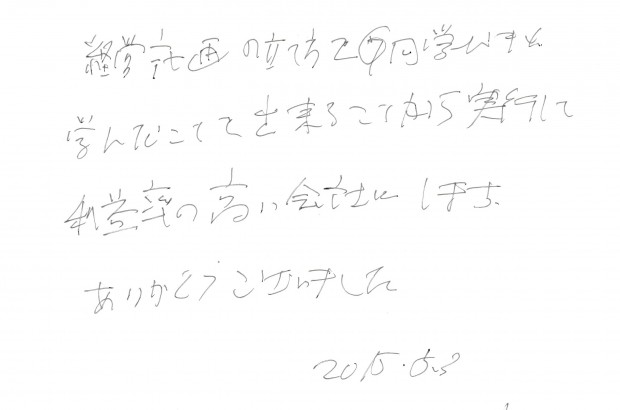 経営計画の立て方で今回学びました
学んだことを出来ることから実行して
利益率の高い会社にします。
ありがとうございました
2015.5.3